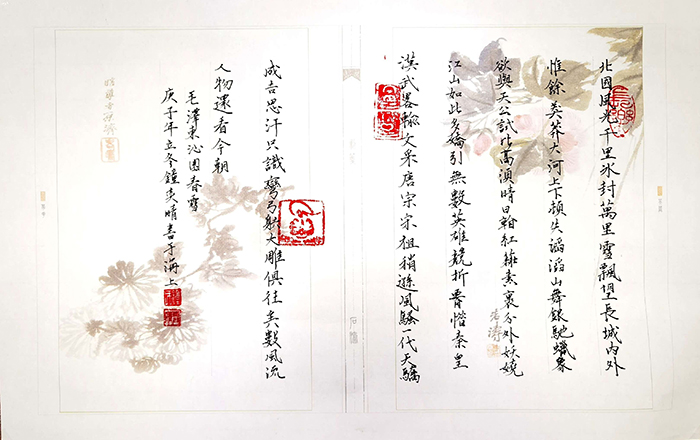 北國風光千里冰封萬里雪飄望長城內外
惟餘莽莽大河上下頓失滔滔山舞銀馳蠟象
欲與天公試比高須晴日看紅裝素裹分外妖嬈
江山如此多嬌引無數英雄競折腰惜秦皇
漢武略輸文采唐宗宋祖稍遜風騷一代天驕
成吉思汗只識彎弓射大雕俱往矣數風流
人物還看今朝
毛澤東沁園春雪
庚子年立冬鐘奕晴書于海上